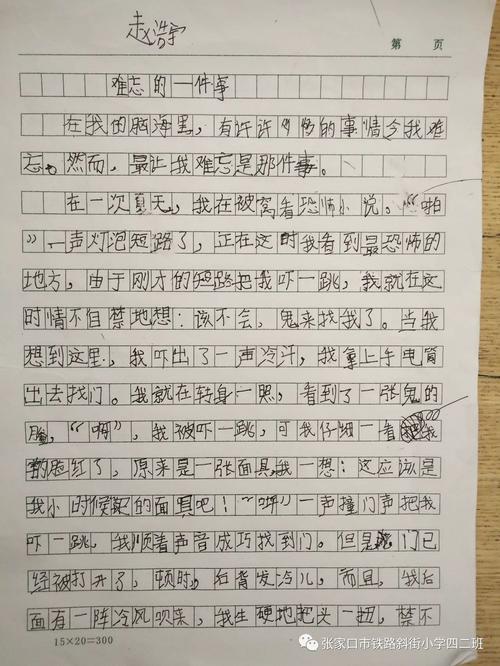 赵浩宇
第 页
难忘的一件事
在我的脑海里，有许许多多的事情令我难
忘。然而，最让我难忘是那件事。
在一次夏天，我在被窝看恐怖小说。“啪
”一声灯泡短路了，正在这时我看到最恐怖的
地方，由于刚才的短路把我吓一跳，我就在这
时情不自禁地想：该不会，鬼来找我了。当我
想到这里，我吓出了一声冷汗，我拿上手电筒
出去找门。我就在转身一照，看到了一张鬼的
脸，“啊”，我被吓一跳，可我仔细一看我
的脸红了，原来是一张面具，我一想：这应该是
我小时候的面具吧！“咣”一声撞门声把我
吓一跳，我顺着声音成巧找到门。但是门已
经被打开了，顿时，后背发冷儿，而且，我后
面有一阵冷风吹来，我生硬地把头一扭，禁不
15×20=300
张家口市铁路斜街小学四二班